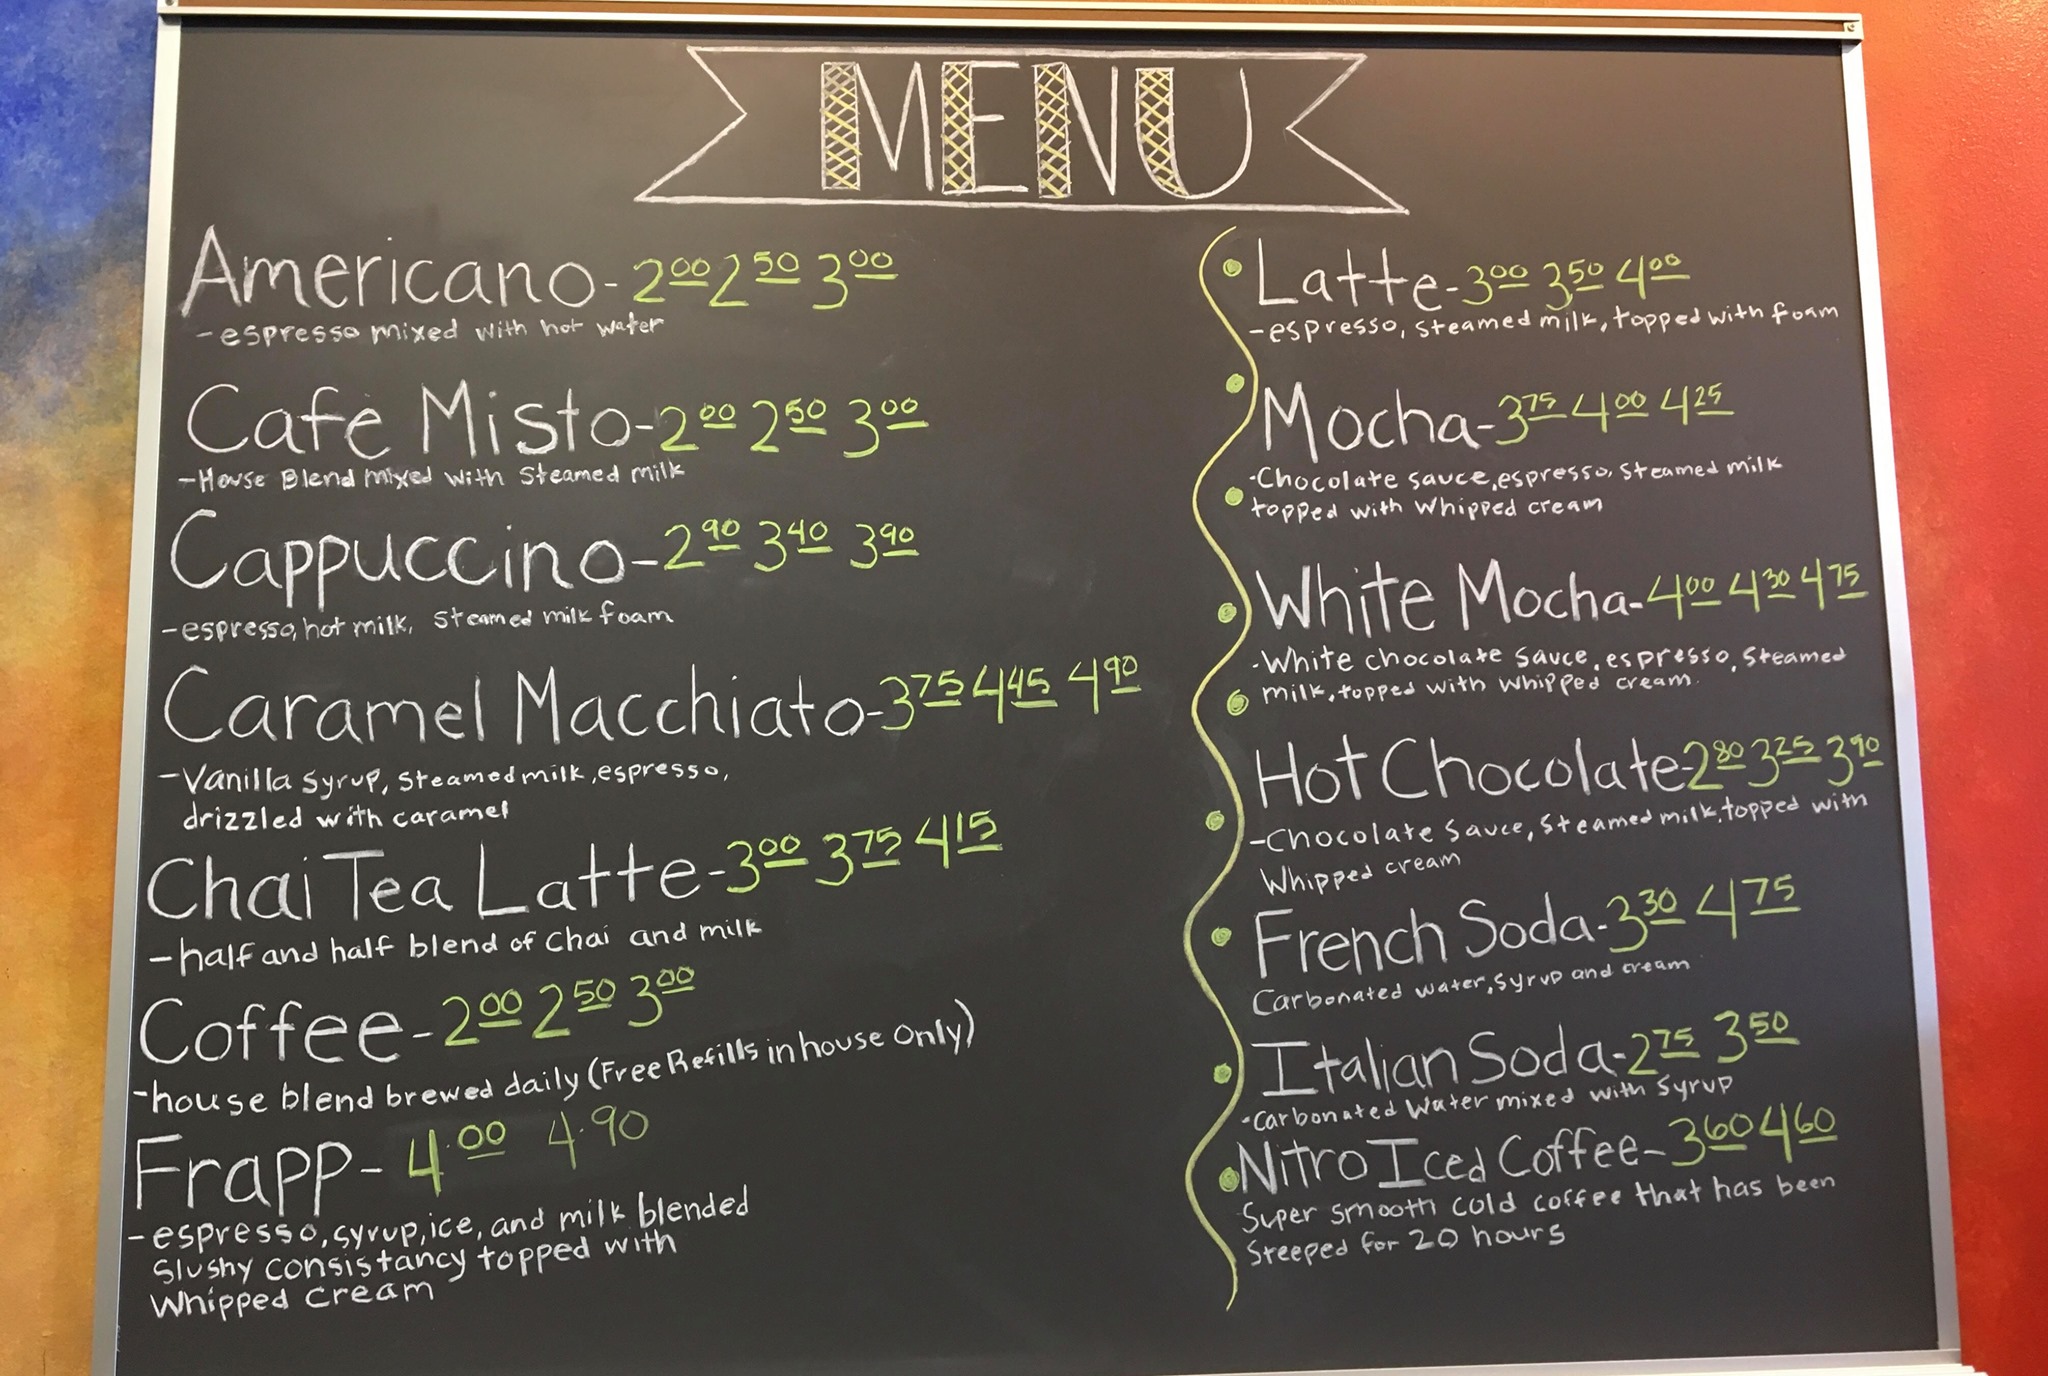 MENU
Americano- 2.00 2.50 3.00
-espresso mixed with hot water
Cafè Misto- 2.00 2.50 3.00
-House Blend mixed with Steamed milk
Cappuccino- 2.90 3.40 3.90
-espresso, hot milk, steamed milk foam
Caramel Macchiato- 3.75 4.45 4.90
-Vanilla Syrup, Steamed milk, espresso,
drizzled with caramel
Chai Tea Latte- 3.00 3.75 4.15
-half and half blend of Chai and milk
Coffee- 2.00 2.50 3.00
-house blend brewed daily (Free Refills in house only)
Frapp- 4.00 4.90
-espresso, syrup, ice, and milk blended
Slushy consistancy topped with
Whipped cream
Latte- 3.00 3.50 4.00
-espresso, steamed milk, topped with foam
Mocha- 3.75 4.00 4.25
-Chocolate sauce, espresso, steamed milk
topped with whipped cream
White Mocha- 4.00 4.30 4.75
-White chocolate sauce, espresso, steamed
milk, topped with whipped cream.
Hot Chocolate- 2.80 3.25 3.90
-Chocolate sauce, steamed milk, topped with
Whipped cream
French Soda- 3.30 4.75
Carbonated water, syrup and cream
Italian Soda- 2.75 3.50
-Carbonated Water mixed with Syrup
Nitro Iced Coffee- 3.60 4.60
Super smooth cold coffee that has been
Steeped for 20 hours